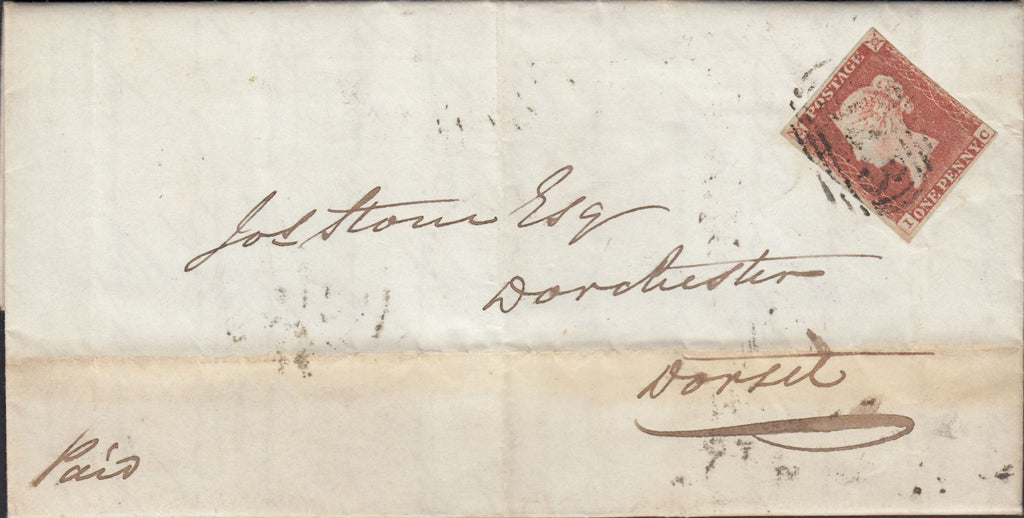 POSTAGE
ONE PENNY
I C
Jos Stone Esq
Dorchester
Dorset
Paid